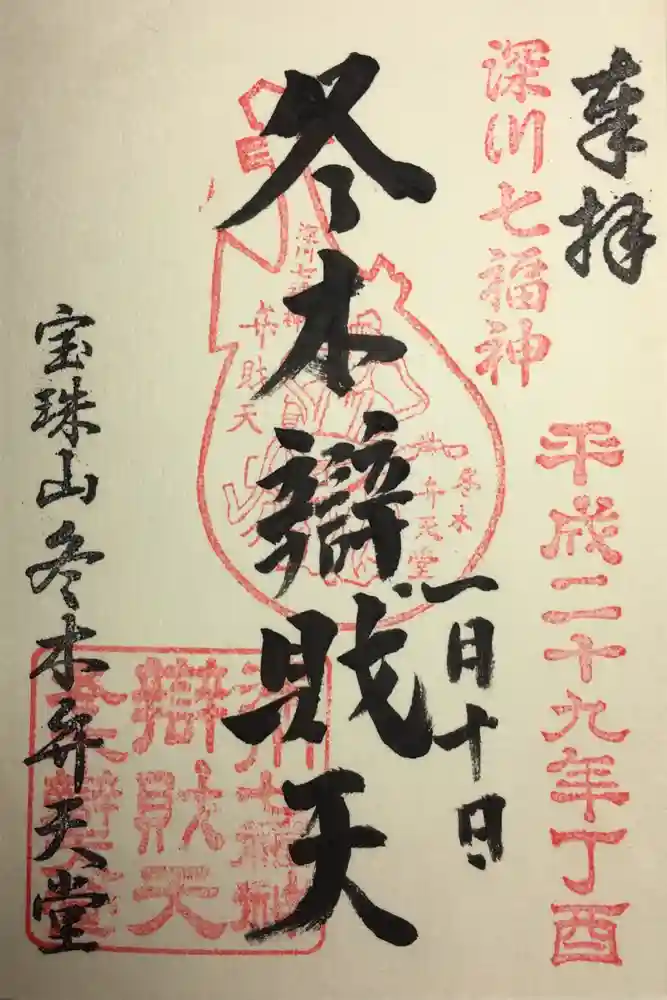 奉拝
深川七福神
平成二十九年丁酉
一月十日
冬木辯財天
深川七福神
弁財天
冬木
弁天堂
深川七福神
辯財天
宝珠山冬木弁天堂